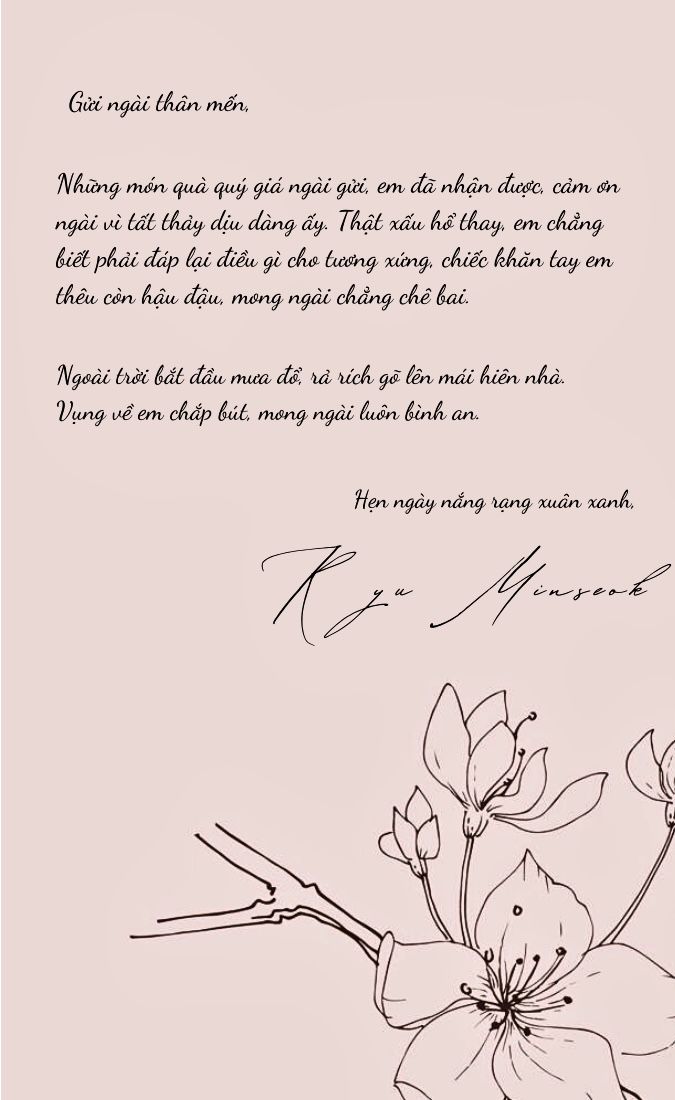 Gửi ngài thân mến,
Những món quà quý giá ngài gửi, em đã nhận được, cảm ơn
ngài vì tất thảy dịu dàng ấy. Thật xấu hổ thay, em chẳng
biết phải đáp lại điều gì cho tương xứng, chiếc khăn tay em
thêu còn hậu đậu, mong ngài chẳng chê bai.
Ngoài trời bắt đầu mưa đổ, rả rích gõ lên mái hiên nhà.
Vụng về em chắp bút, mong ngài luôn bình an.
Hẹn ngày nắng rạng xuân xanh,
Ryu Minseok